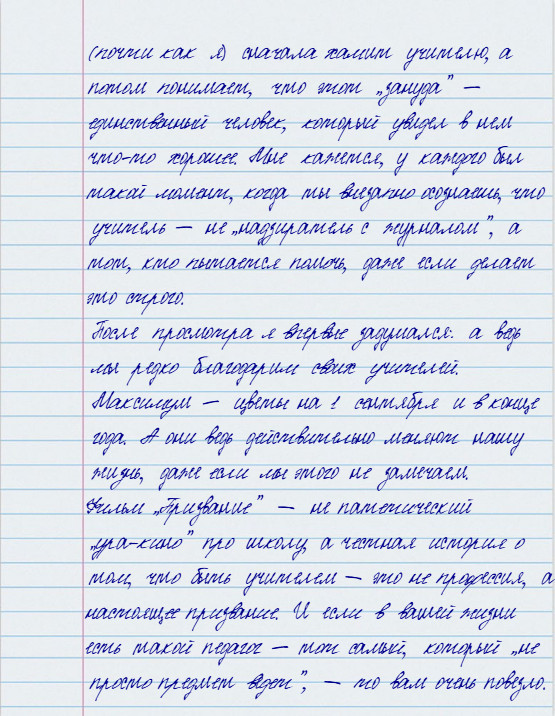 (почти как я) сначала хамит учителю, а
потом понимает, что этот „зануда” —
единственный человек, который увидел в нем
что-то хорошее. Мне кажется, у каждого был
такой момент, когда ты внезапно осознаешь, что
учитель — не „надзиратель с журналом”, а
тот, кто пытается помочь, даже если делает
это строго.
После просмотра я впервые задумался: а ведь
мы редко благодарим своих учителей.
Максимум — цветы на 1 сентября и в конце
года. А они ведь действительно меняют нашу
жизнь, даже если мы этого не замечаем.
Фильм „Призвание” — не патетический
„ура-кино” про школу, а честная история о
том, что быть учителем — это не профессия, а
настоящее призвание. И если в вашей жизни
есть такой педагог — тот самый, который „не
просто предмет ведет”, — то вам очень повезло.